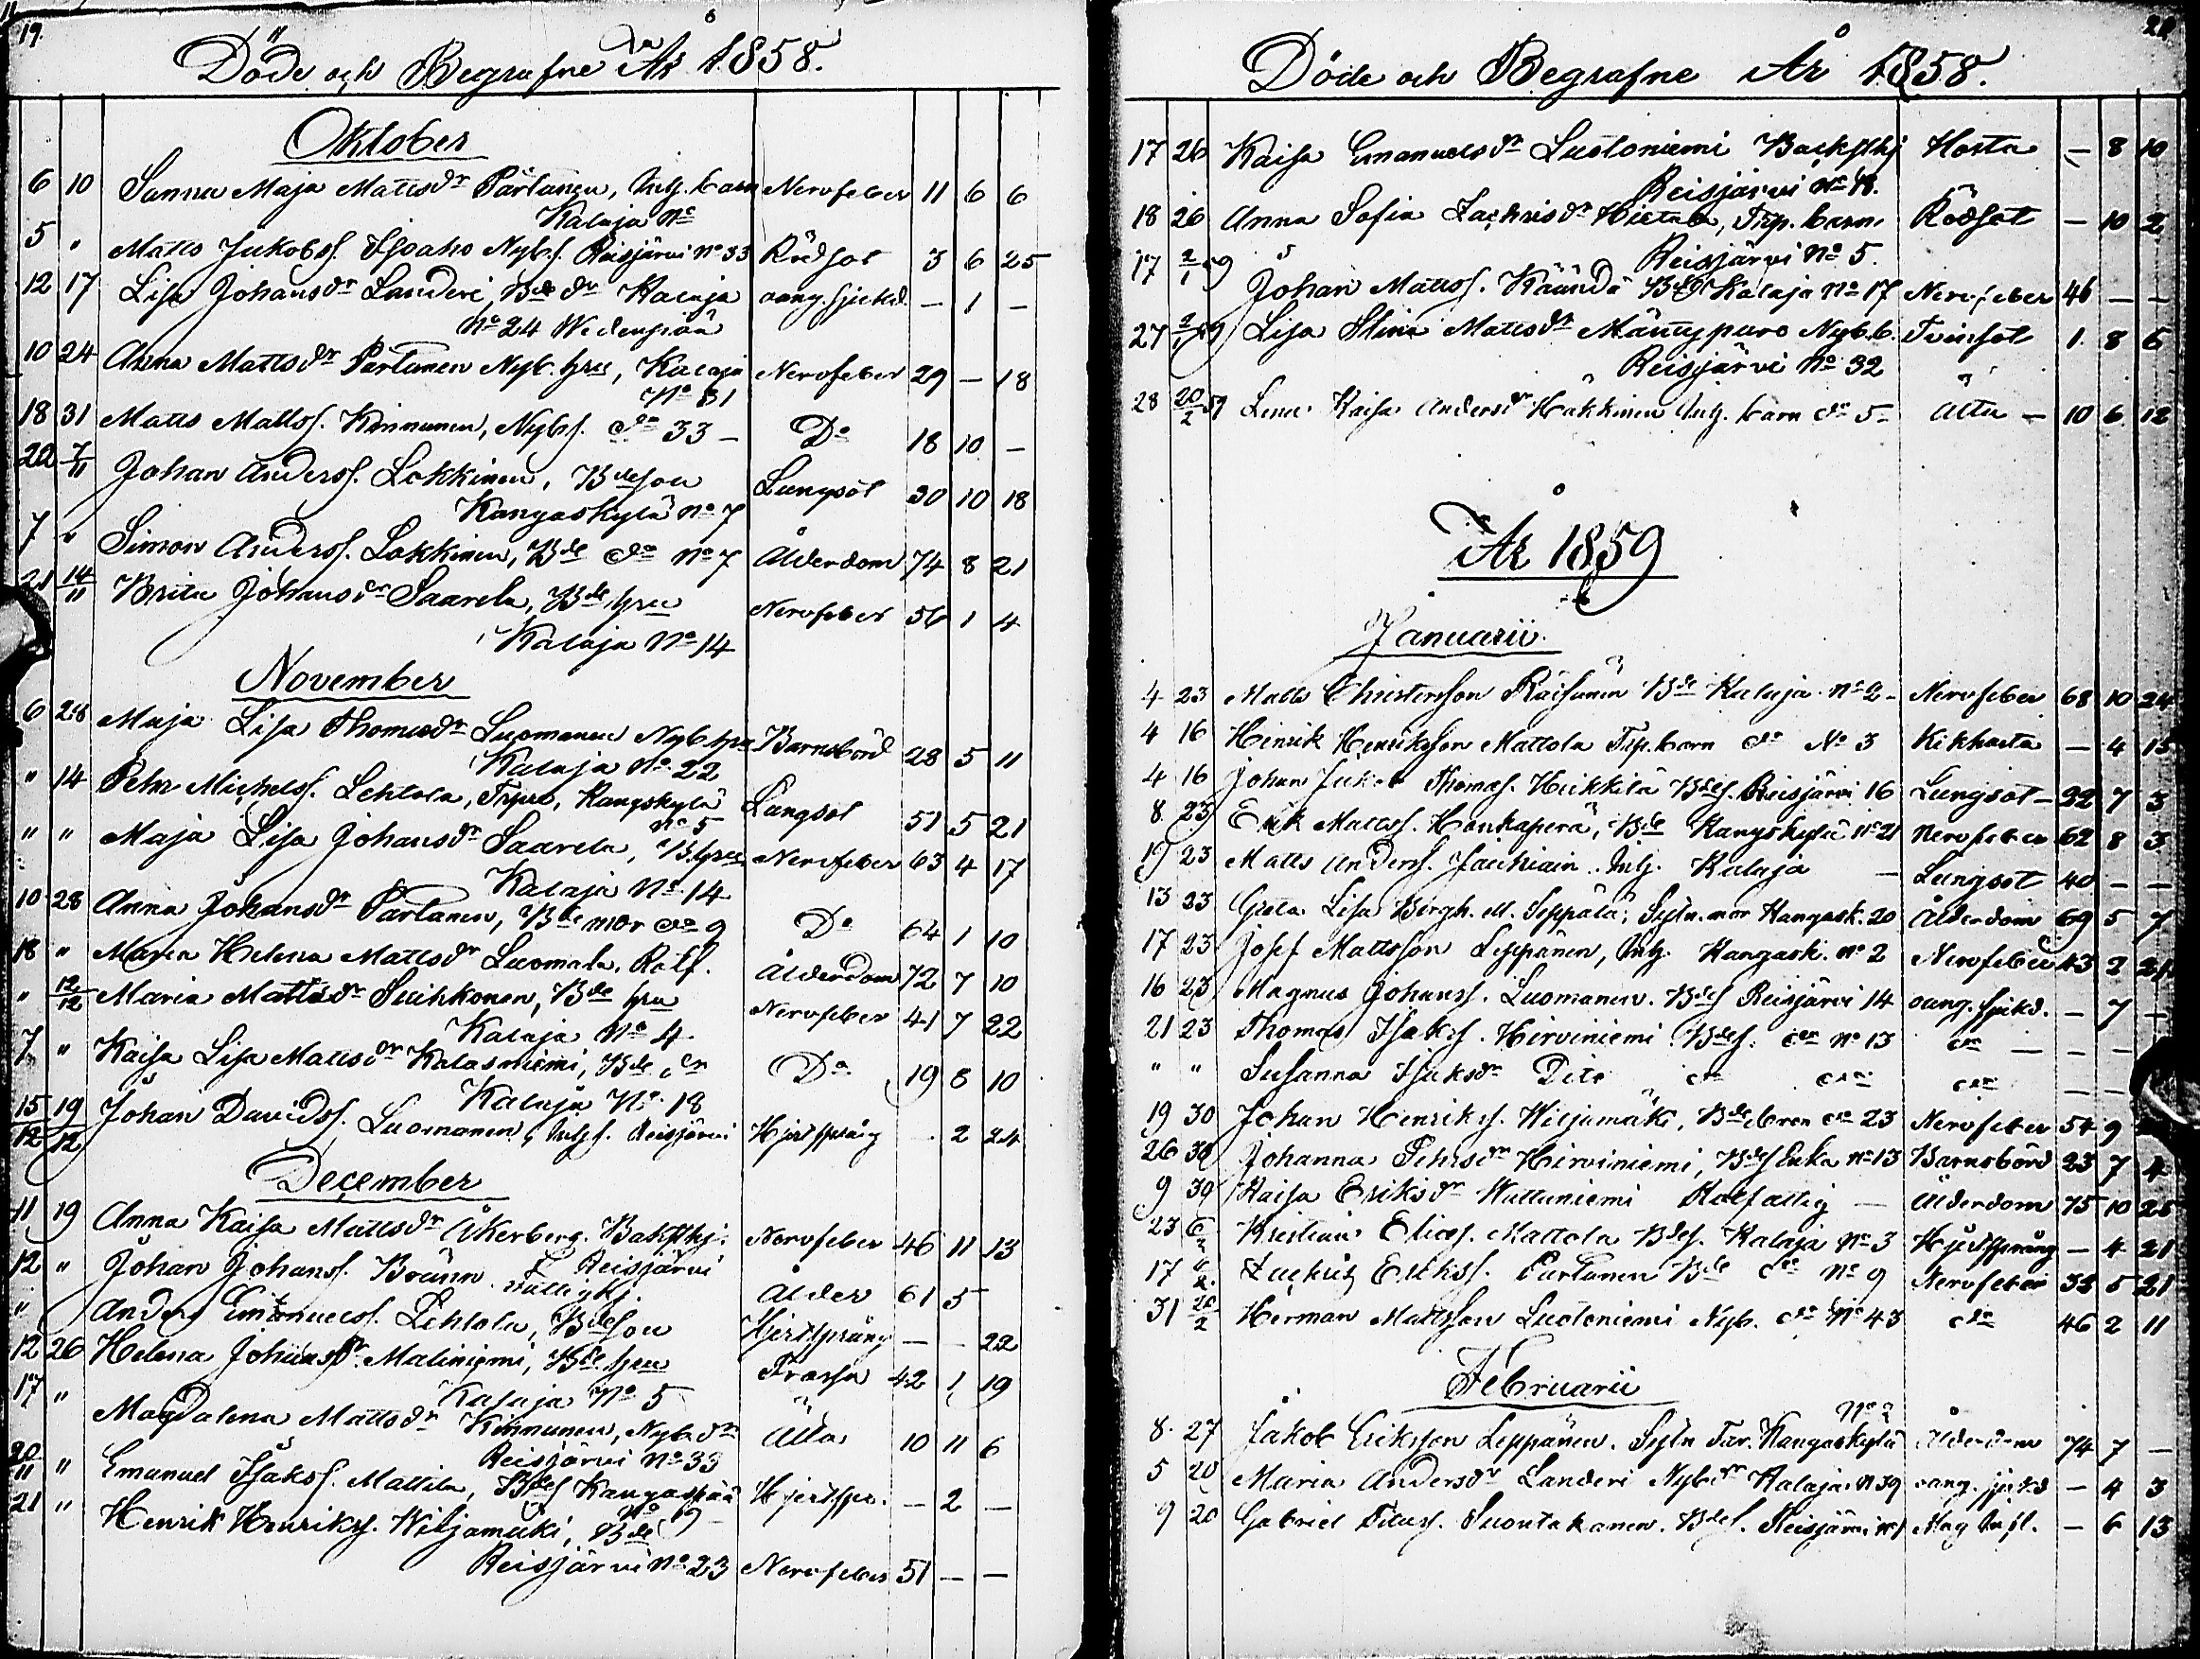 19.
Döde och Begrafne År 1858.
Oktober
6 10 Sanna Maja Mattsdr Partanen, Inh. barn Nervfeber 11 6 6
Kalaja No
5 " Matts Jakobs. Ahoaho Nybs. Reisjärvi No 33 Rödsot 3 6 25
12 17 Lisa Johansdr Landeri, Bde dr Kalaja oang. sjukd. - 1 -
No 24
10 24 Anna Mattsdr Partanen Nyb. hru, Kalaja Nervfeber 29 - 18
No 31
18 31 Matts Mattss. Kinnunen, Nybs. do 33 - Do 18 10 -
22 7/11 Johan Anderss. Lokkinen, Bdeson Lungsot 30 10 18
Kangaskylä No 7
7 " Simon Anderss. Lokkinen, Bde do No 7 Ålderdom 74 8 21
21 14/11 Brita Johansdr Saarela, Bde hru Nervfeber 56 1 4
Kalaja No 14
November
6 28 Maja Lisa Thomasdr Luomanen Nyb. hru Barnsbörd 28 5 11
Kalaja No 22
" 14 Petter Michelss. Lehtola, Torpare, Kangskylä Lungsot 51 5 21
No 5
" " Maja Lisa Johansdr Saarela, B. hru Nervfeber 63 4 17
Kalaja No 14
10 28 Anna Johansdr Partanen, Bde mor do 9 Do 64 1 10
18 " Maria Helena Mattsdr Luomala, Rotf. Ålderdom 72 7 10
" 12/12 Maria Mattsdr Suihkonen, Bde hru Nervfeber 41 7 22
Kalaja No 4
7 " Kaisa Lisa Mattsdr Kalasniemi, Bde dr Do 19 8 10
Kalaja No 18
15/12 19/12 Johan Davidss. Luomanen, Inhs. Reisjärvi Hjertsprång - 2 24
December
11 19 Anna Kaisa Mattsdr Åkerberg. Backsthj. Nervfeber 46 11 13
Reisjärvi
12 " Johan Johanss. Brännn fattighj. Ålder 61 5
" Anders Emanuelss. Lehtola, Bdeson Hjertsprång - - 22
12 26 Helena Johansdr Maliniemi, Bde hru Frossa 42 1 19
Kalaja No 5
17 " Magdalena Mattsdr Kinnunen, Nyb. dr Älta 10 11 6
Reisjärvi No 33
20/11 " Emanuel Isakss. Mattila, Bdes Kangaspää Hjertspr. - 2 -
No 19
21 " Henrik Henrikss. Wiljamäki, Bde
Reisjärvi No 23 Nervfeber 51 - -
20
Döde och Begrafne År 1858.
17 26 Kaisa Emanuelsdr Luotoniemi Backsthj Hosta - 8 10
Reisjärvi No 18.
18 26 Anna Sofia Zachrisdr Hietala, Trp. barn Rödsot - 10 2
Reisjärvi No 5.
17 2/1 59 Johan Mattss. Kääntä Bdes Kalaja No 17 Nervfeber 46 - -
27 2/1 59 Lisa Stina Mattsdr Mäntypuro Nyb. b. Tvinsot 1 8 6
Reisjärvi No 32
28 20/2 59 Lena Kaisa Andersdr Häkkinen Inh. barn do 5 - Älta - 10 6 12
År 1859
Januarii
4 23 Matts Christersson Räisänen Bde Kalaja No 2 - Nervfeber 68 10 24
4 16 Henrik Henriksson Mattola Trp. barn do No 3 Kikhosta - 4 15
4 16 Johan Jakob Thomass. Heikkilä Bdes. Reisjärvi 16 Lungsot - 22 7 3
8 23 Erik Mattss. Honkaperä, Bde Kangskylä No 21 Nervfeber 62 8 3
19 23 Matts Anderss. Jauhiain. Inh. Kalaja - Lungsot 40 - -
13 23 Greta Lisa Bergh. M. Seppälä, Sytn. mor Kangask. 20 Ålderdom 69 5 7
17 23 Josef Mattsson Leppänen, Inh. Kangask. No 2 Nervfeber 43 2 21
16 23 Magnus Johanss. Luomanen. Bdes Reisjärvi 14 oang. sjukd. - 7 -
21 23 Thomas Isakss. Hirviniemi Bdes. do No 13 do - - -
" " Susanna Isaksdr Dito do do do - -
19 30 Johan Henrikss. Wiljamäki, Bde bror do 23 Nervfeber 54 9
26 30 Johanna Pehrsdr Hirviniemi, Bdes Enka No 13 Barnsbörd 23 7 4
9 30 Kaisa Eriksdr Wuttuniemi Rotfattig - Ålderdom 75 10 25
23 6/2 Kristian Eliass. Mattola Bdes. Kalaja No 3 Hjertsprång - 4 21
17 6/2 Zachris Erikss. Partanen Bde do No 9 Nervfeber 32 5 21
31 20/2 Herman Mattsson Luotoniemi Nyb. do No 43 do 46 2 11
Februarii
No 2
8 27 Jakob Eriksson Leppänen. Sytn. Far. Kangaskylä Ålderdom 74 7 -
5 20 Maria Andersdr Landeri Nyb. dr Kalaja N 39 oang. sjukd - 4 3
9 20 Gabriel Suontakanen. Bdes. Reisjärvi No 1 Mag Infl. - 6 13